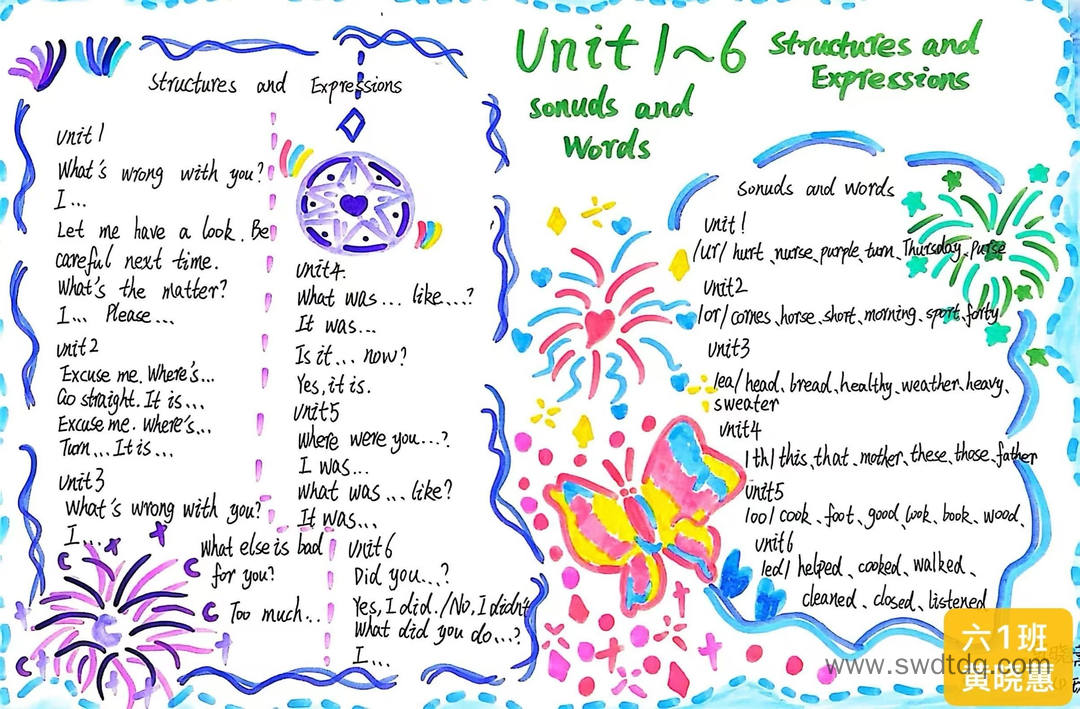 Structures and Expressions
Unit 1
What's wrong with you?
I...
Let me have a look. Be
careful next time.
What's the matter?
I... Please...
Unit 2
Excuse me. Where's...
Go straight. It is...
Excuse me. Where's...
Turn... It is...
Unit 3
What's wrong with you?
I...
What else is bad
for you?
Too much...
Unit4.
What was... like...?
It was...
Is it... now?
Yes, it is.
Unit5
Where were you...?
I was...
What was... like?
It was...
Unit 6
Did you...?
Yes, I did. /No, I didn't
What did you do...?
I...
Unit 1~6
Structures and
Expressions
sonuds and
Words
sonuds and words
Unit 1
/ur/ hurt、nurse、purple、turn、Thursday、purse
Unit2
/or/ cornes、horse、short、morning、sport、forty
Unit3
/ea/ head、bread、healthy、weather、heavy、
sweater
Unit4
/th/ this、that、mother、these、those、father
Unit5
/oo/ cook、foot、good、look、book、wood、
Unit6
/ed/ helped、cooked、walked、
cleaned、closed、listened
六1班
黄晓惠
www.swdtdq.com